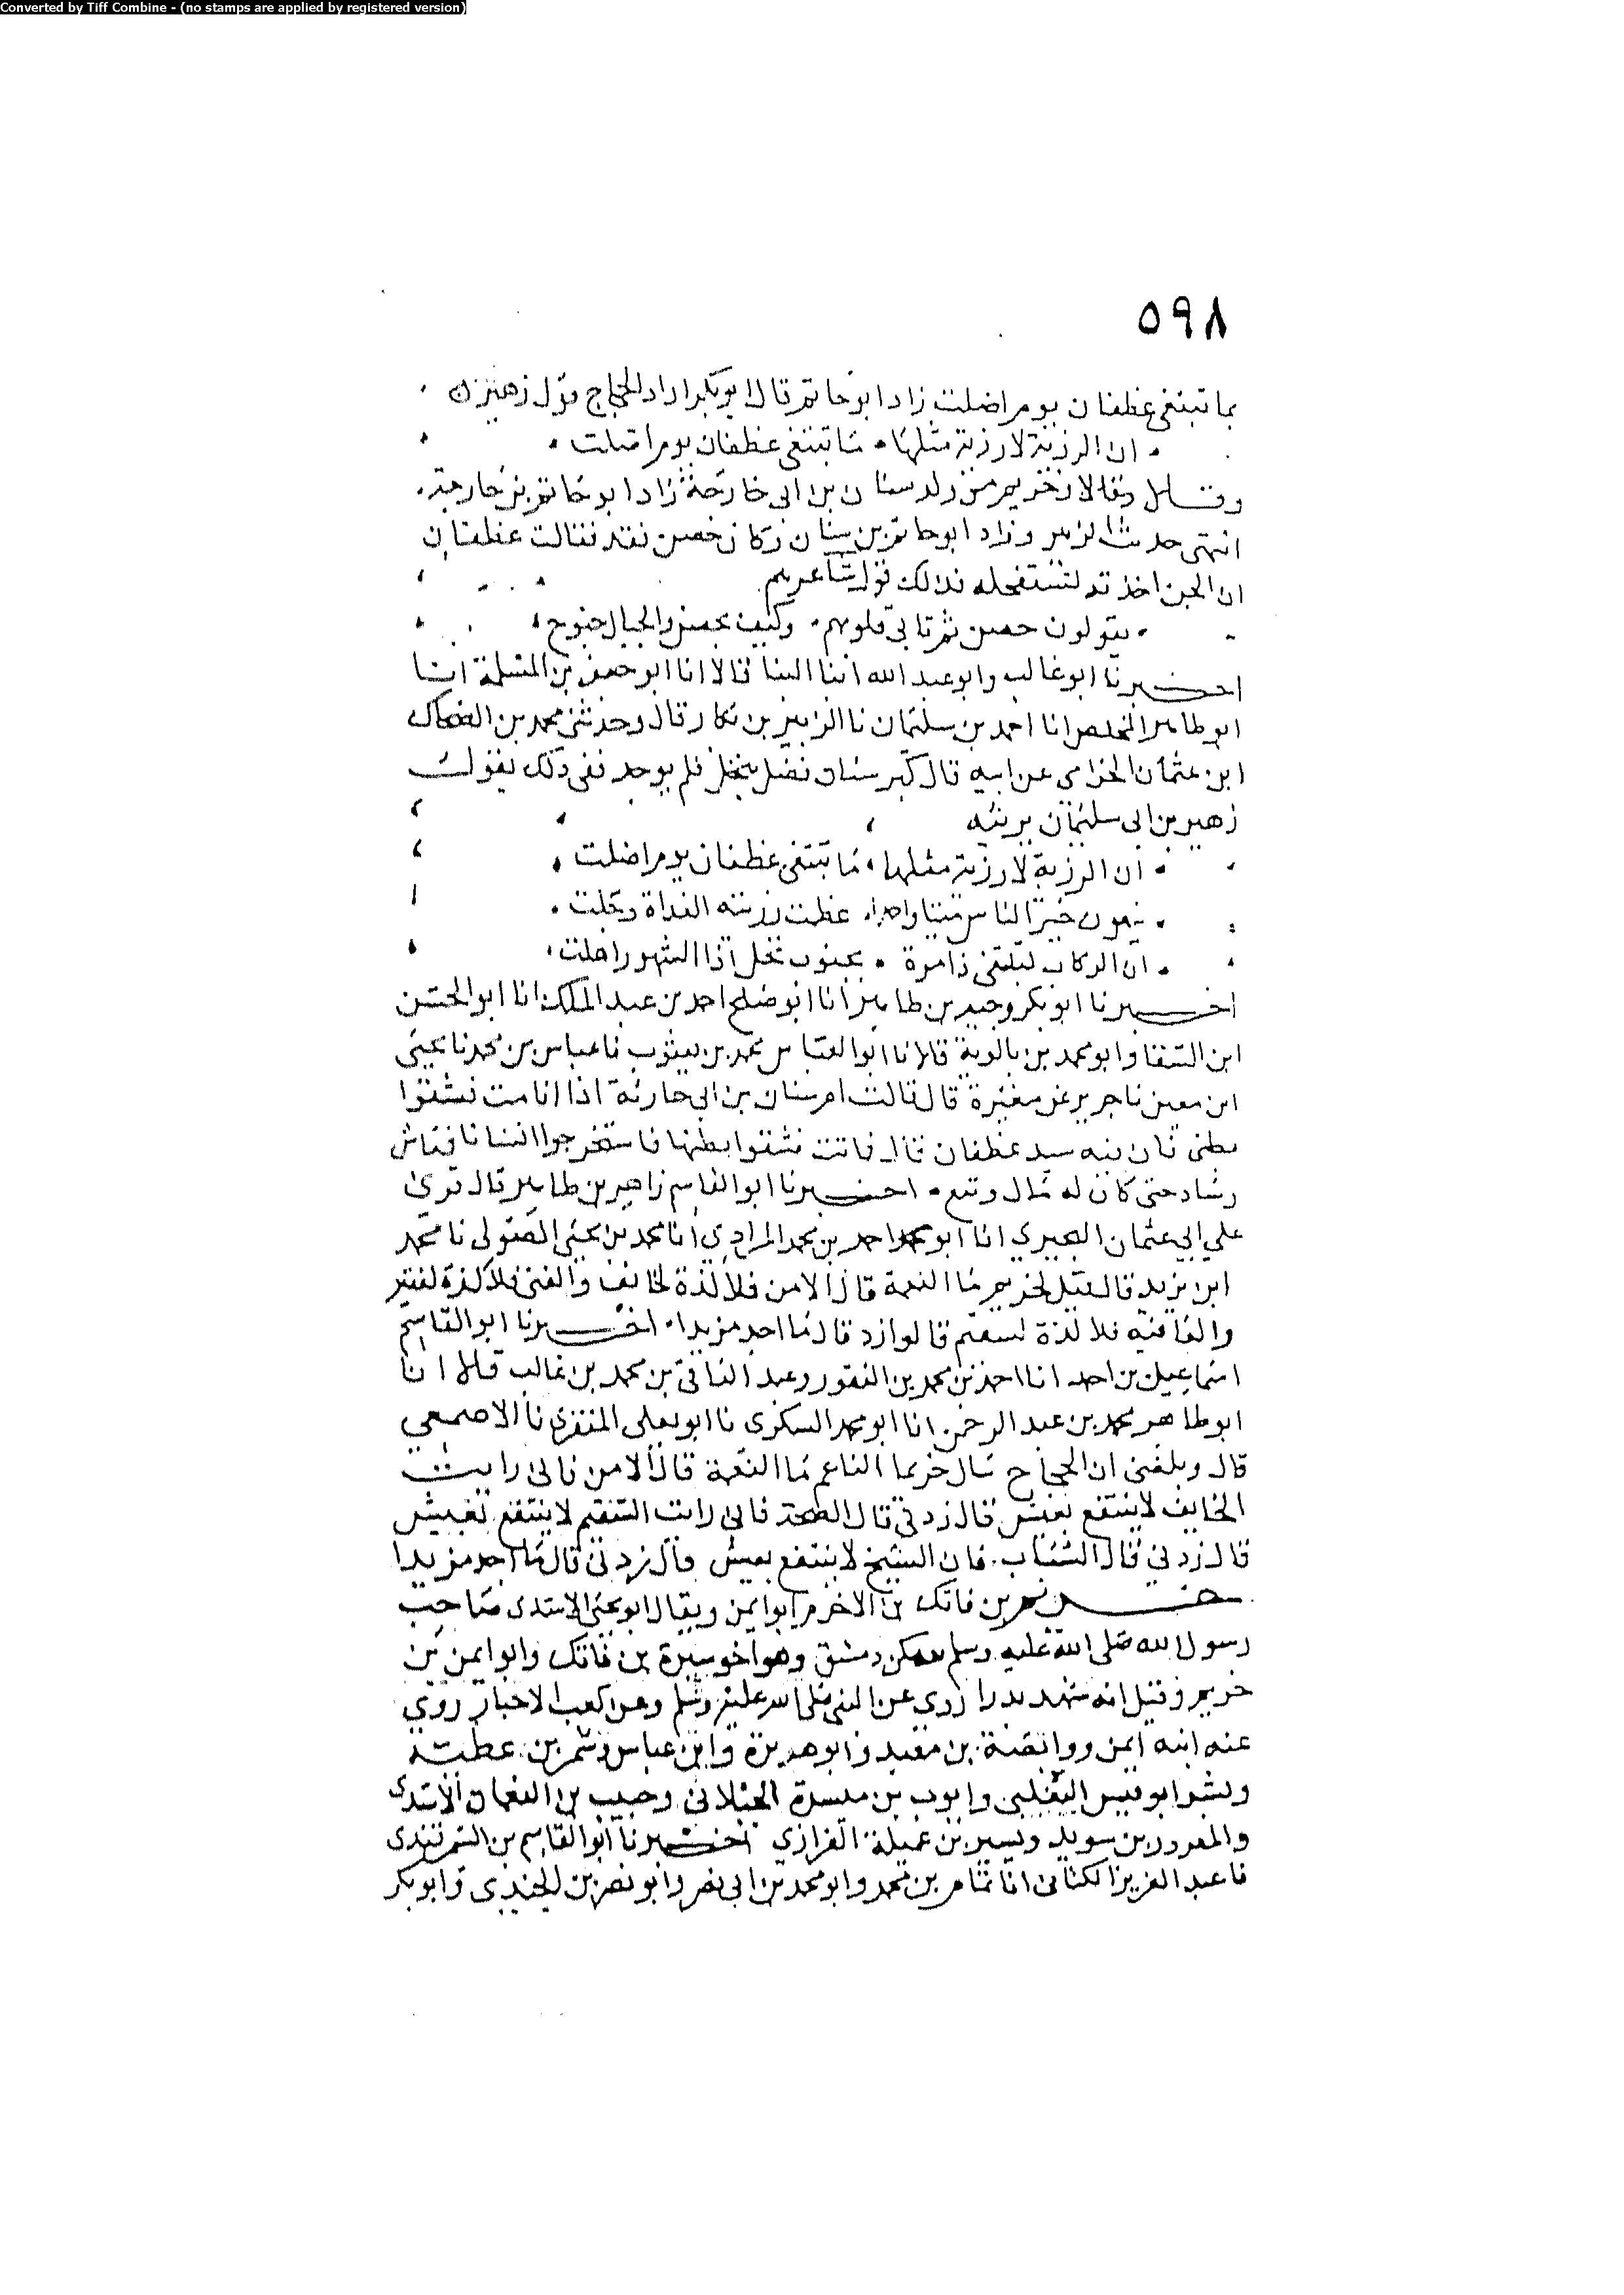 Converted by Tiff Combine - (no stamps are applied by registered version)
٥٩٨
بما تبتغي غطفان يوم اضلت زاد ابو حاتم قال ابو بكر اراد الحجاج قول زهير
ان الرزية لا رزية مثلها ما تبتغي غطفان يوم اضلت
خريم من ولد سنان بن ابي حارثة زاد ابو حاتم بن خارجة
انتهى حديث الزبير وزاد ابو حاتم بن سنان وكان حصن فقد فقالت غطفان
ان الجن اخذته لتستفحله فذلك قول شاعرهم
يقولون حصن ثم تابى قلوبهم وكيف بحصن والجبال جنوح
اخبرنا ابو غالب وابو عبد الله ابنا البنا قالا انا ابو جعفر بن المسلمة انا
ابو طاهر المخلص انا احمد بن سليمان نا الزبير بن بكار قال وحدثني محمد بن الضحاك
ابن عثمان الحزامي عن ابيه قال كبر سنان فضل بنخل فلم يوجد ففي ذلك يقول
زهير بن ابي سليمان يرثيه
ان الرزية لا رزية مثلها ما تبتغي غطفان يوم اضلت
ينعون خير الناس ميتا واحدا عظمت رزيته الغداة وجلت
ان الركاب لتبتغي ذا مرة بجنوب نخل اذا الشهور احلت
اخبرنا ابو بكر وجيه بن طاهر انا ابو صالح احمد بن عبد الملك انا ابو الحسن
ابن السقا وابو محمد بن بالوية قالا نا ابو العباس محمد بن يعقوب نا عباس بن محمد نا يحيى
ابن معين نا جرير عن مغيرة قال قالت ام سنان بن ابي حارثة اذا انا مت فشقوا
بطني فان فيه سيد غطفان قال فماتت فشقوا بطنها فاستخرجوا سنانا فعاش
وساد حتى كان له مال وتبع اخبرنا ابو القاسم زاهر بن طاهر قال قرئ
علي ابي عثمان البحيري انا ابو محمد احمد بن محمد المرادي انا محمد بن يحيى الصولي نا محمد
ابن يزيد قال قيل لخريم ما النعمة قال الامن فلا لذة لخائف والغنى فلا لذة لفقير
والعافية فلا لذة لسقيم قالوا زد قال ما اجد مزيدا اخبرنا ابو القاسم
اسماعيل بن احمد انا احمد بن محمد بن النقور وعبد الباقي بن محمد بن غالب قالا انا
ابو طاهر محمد بن عبد الرحمن انا ابو محمد السكري نا ابو يعلى المنقري نا الاصمعي
قال وبلغني ان الحجاج سال خريما الناعم ما النعمة قال الامن فاني رايت
الخايف لا ينتفع بعيش قال زدني قال الصحة فاني رايت السقيم لا ينتفع بعيش
قال زدني قال الشباب فان الشيخ لا ينتفع بعيش قال زدني قال ما اجد مزيدا
خريم بن فاتك بن الاخرم ابو ايمن ويقال ابو يحيى الاسدي صاحب
رسول الله صلى الله عليه وسلم سكن دمشق وهو اخو سبرة بن فاتك وابو ايمن بن
خريم وقيل انه شهد بدرا روى عن النبي صلى الله عليه وسلم وعن كعب الاحبار روى
عنه ابنه ايمن ووابصة بن معبد وابو هريرة وابن عباس وشمر بن عطية
وبشر ابو قيس التغلبي وايوب بن ميسرة الجبلاني وحبيب بن النعمان الاسدي
والمعرور بن سويد ويسير بن عميلة الفزاري اخبرنا ابو القاسم بن السمرقندي
نا عبد العزيز الكتاني انا تمام بن محمد وابو محمد بن ابي نصر وابو نصر بن الجندي وابو بكر